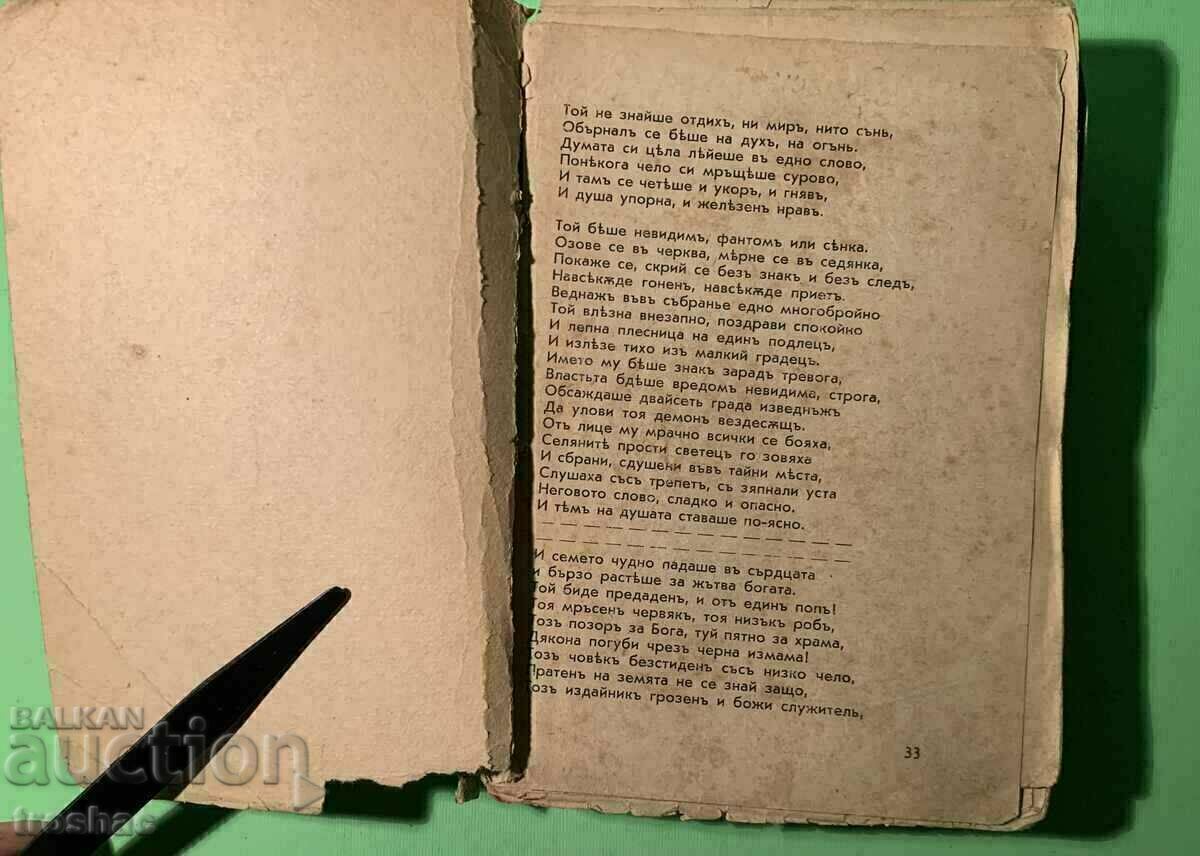 Той не знайше отдихъ, ни миръ, нито сънь,
Обърналъ се бѣше на духъ, на огънь.
Думата си цѣла лѣйеше въ едно слово,
Понѣкога чело си мръщѣше сурово,
И тамъ се четѣше и укоръ, и гнявъ,
И душа упорна, и желѣзенъ нравъ.
Той бѣше невидимъ, фантомъ или сѣнка.
Озове се въ черква, мѣрне се въ седянка,
Покаже се, скрий се безъ знакъ и безъ следъ,
Навсѣкѫде гоненъ, навсѣкѫде приетъ.
Веднажъ във събранье едно многобройно
Той влѣзна внезапно, поздрави спокойно
И лепна плесница на единъ подлецъ,
И излѣзе тихо изъ малкий градецъ.
Името му бѣше знакъ зарадъ тревога,
Властьта бдѣше вредомъ невидима, строга,
Обсаждаше двайсеть града изведнъжъ
Да улови тоя демонъ вездесѫщъ.
Отъ лице му мрачно всички се бояха,
Селянитѣ прости светецъ го зовяха
И сбрани, сдушени въвъ тайни мѣста,
Слушаха съсъ трепетъ, съ зяпнали уста
Неговото слово, сладко и опасно.
И тѣмъ на душата ставаше по-ясно.
И семето чудно падаше въ сърдцата
и бързо растѣше за жътва богата.
Той биде предаденъ, и отъ единъ попъ!
Тоя мръсенъ червякъ, тоя низъкъ робъ,
Тозъ позоръ за Бога, туй пятно за храма,
Дякона погуби чрезъ черна измама!
Тозъ човѣкъ безстиденъ съсъ низко чело,
Пратенъ на земята не се знай защо,
Тозъ издайникъ грозенъ и божи служитель,
33
BALKAN
auction
troshac